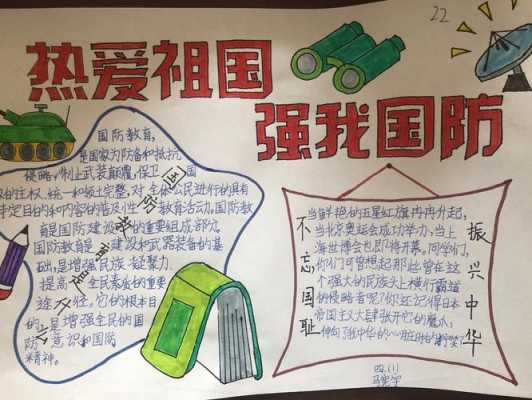 22
热爱祖国
强我国防
国防教育,
是国家为防备和抵抗
侵略,制止武装颠覆,保卫国
的主权、统一和领土完整,对全体公民进行的具有
特定目的和内容的普及性教育活动。国防教
育是国防建设的重要组成部分,
国防教育是建设和武器装备的基
础,是增强民族凝聚力、
提高全民素质的重要
途径。它的根本目
的是增强全民的国
防意识和国防
精神。
国防教育
不忘国耻
当鲜艳的五星红旗冉冉升起,
当北京奥运会成功举办,当上
海世博会也即将开幕,同学们,
你们可曾想起那些曾在这
个强大的民族头上横行霸道
的侵略者呢?你还记得日本
帝国主义大肆张开它的魔爪,
伸向中华的
振兴中华
四.(1)